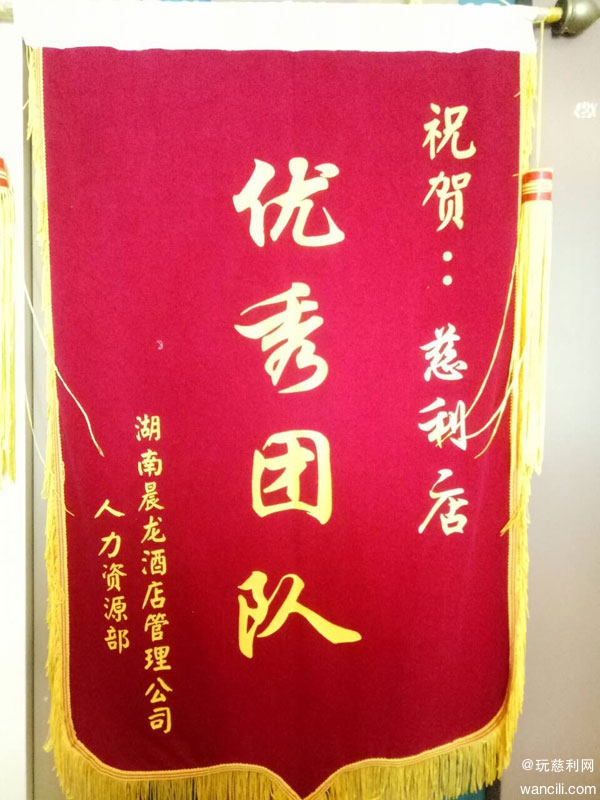 祝贺：慈利店
优秀团队
湖南晨龙酒店管理公司
人力资源部
@玩慈利网
wancili.com